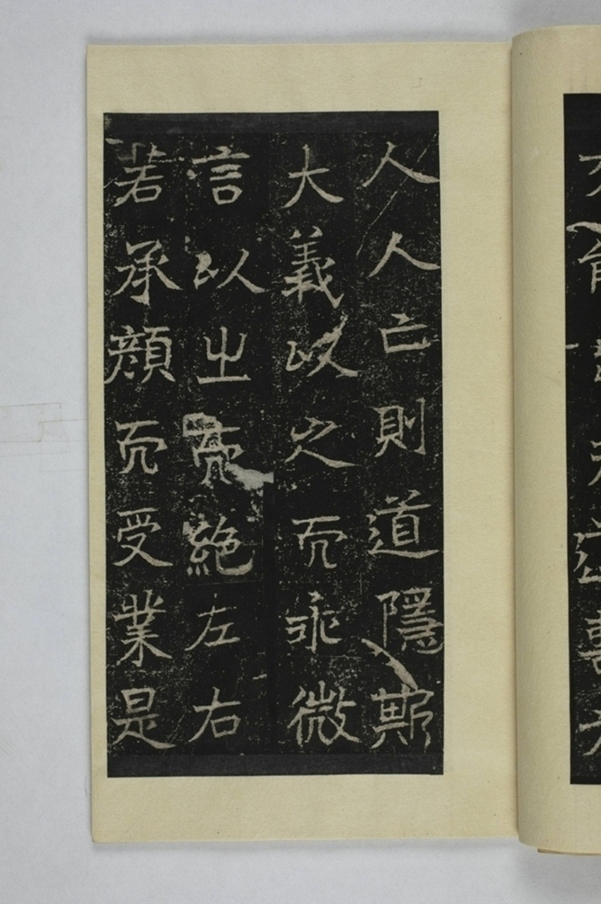 人人亡則道隱斯
大義以之而乖微
言以之而絶左右
若承顔而受業是